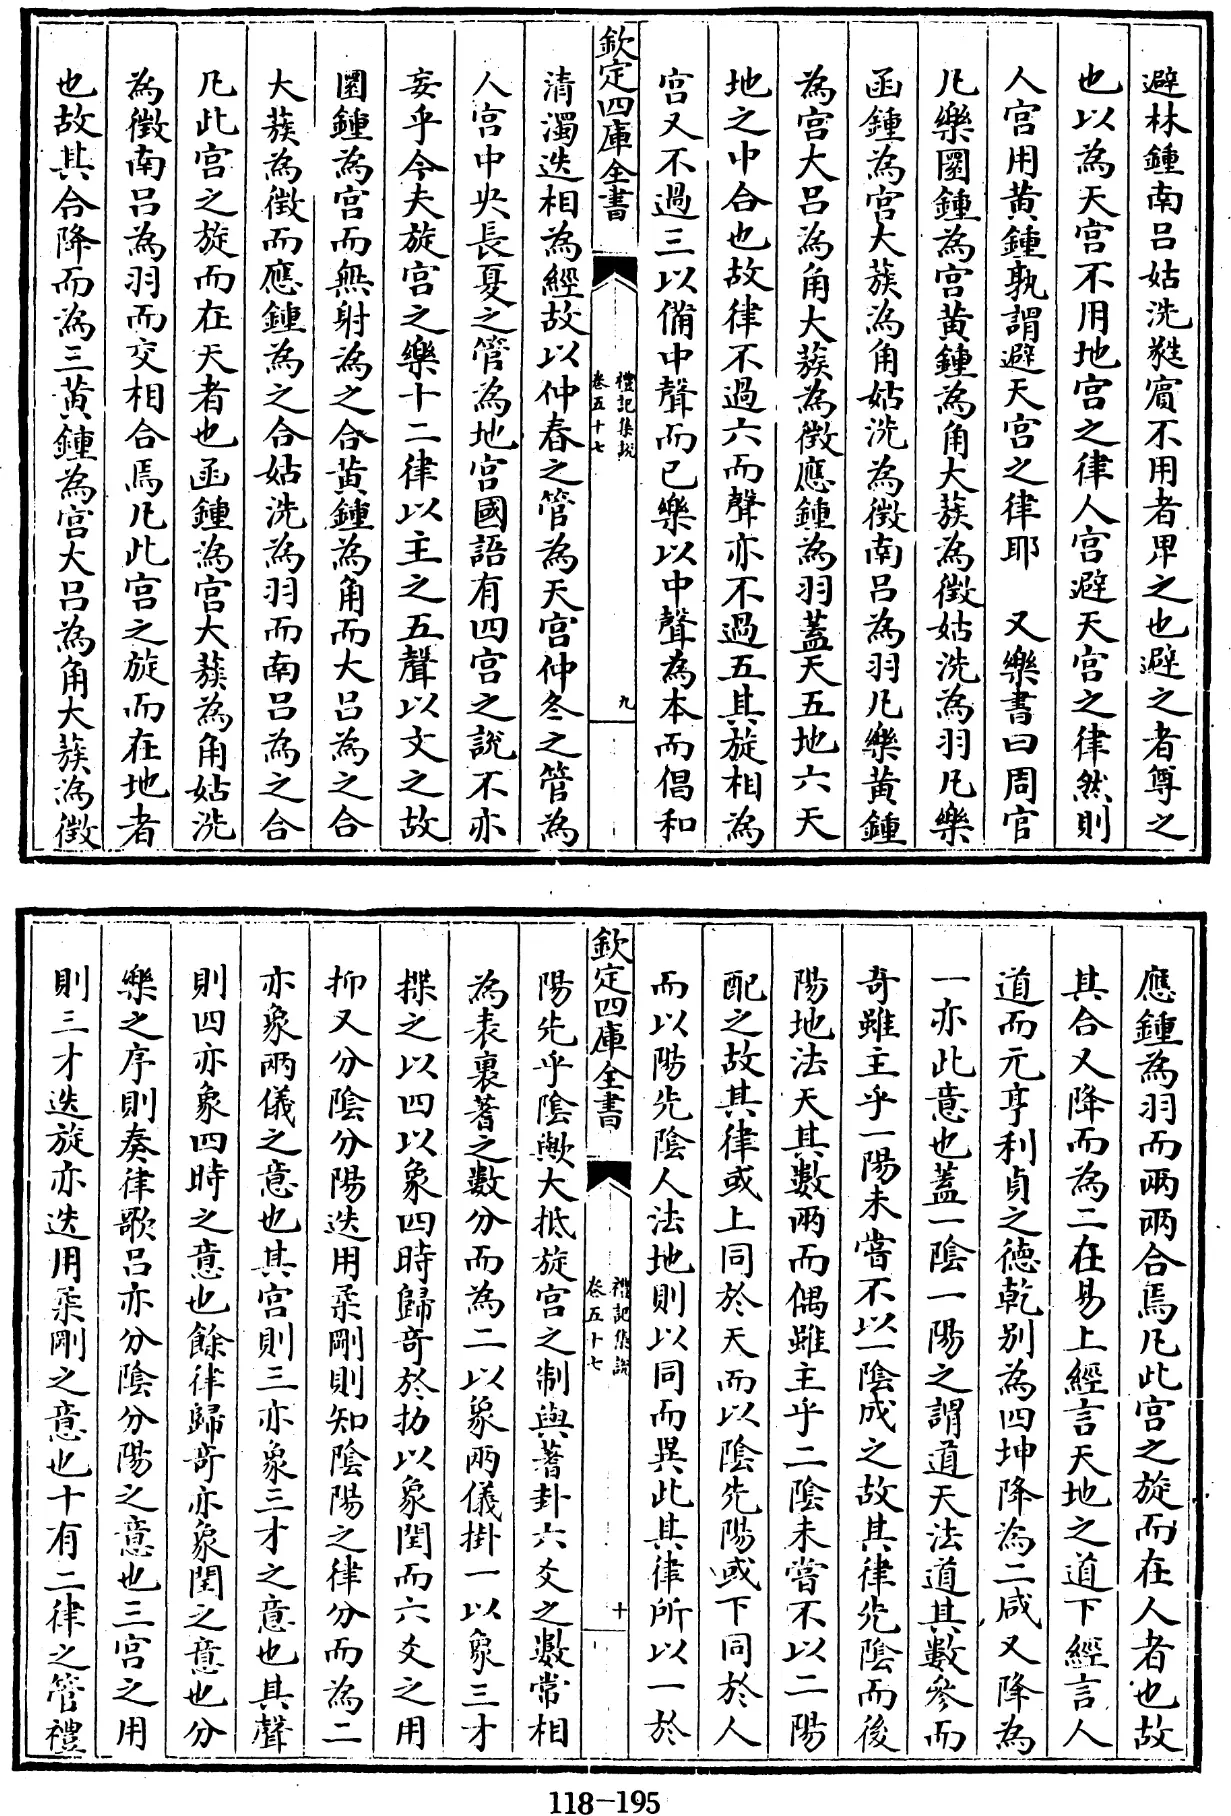 避林鍾南吕姑洗蕤賓不用者卑之也避之者尊之
也以為天宫不用地宫之律人宫避天宫之律然則
人宫用黄鍾孰謂避天宫之律耶　又樂書曰周官
凡樂圜鍾為宫黄鍾為角大蔟為徵姑洗為羽凡樂
函鍾為宫大蔟為角姑洗為徵南吕為羽凡樂黄鍾
為宫大吕為角大蔟為徵應鍾為羽蓋天五地六天
地之中合也故律不過六而聲亦不過五其旋相為
宫又不過三以備中聲而已樂以中聲為本而倡和
欽定四庫全書
禮記集説
卷五十七
九
清濁迭相為經故以仲春之管為天宫仲冬之管為
人宫中央長夏之管為地宫國語有四宫之説不亦
妄乎今夫旋宫之樂十二律以主之五聲以文之故
圜鍾為宫而無射為之合黄鍾為角而大吕為之合
大蔟為徵而應鍾為之合姑洗為羽而南吕為之合
凡此宫之旋而在天者也函鍾為宫大蔟為角姑洗
為徵南吕為羽而交相合焉凡此宫之旋而在地者
也故其合降而為三黄鍾為宫大吕為角大蔟為徵
應鍾為羽而兩兩合焉凡此宫之旋而在人者也故
其合又降而為二在易上經言天地之道下經言人
道而元亨利貞之德乾别為四坤降為二咸又降為
一亦此意也蓋一陰一陽之謂道天法道其數參而
奇雖主乎一陽未嘗不以一陰成之故其律先陰而後
陽地法天其數兩而偶雖主乎二陰未嘗不以二陽
配之故其律或上同於天而以陰先陽或下同於人
而以陽先陰人法地則以同而異此其律所以一於
欽定四庫全書
禮記集説
卷五十七
十
陽先乎陰歟大抵旋宫之制與蓍卦六爻之數常相
為表裏蓍之數分而為二以象兩儀掛一以象三才
揲之以四以象四時歸奇於扐以象閏而六爻之用
抑又分陰分陽迭用柔剛則知陰陽之律分而為二
亦象兩儀之意也其宫則三亦象三才之意也其聲
則四亦象四時之意也餘律歸奇亦象閏之意也分
樂之序則奏律歌吕亦分陰分陽之意也三宫之用
則三才迭旋亦迭用柔剛之意也十有二律之管禮
118-195